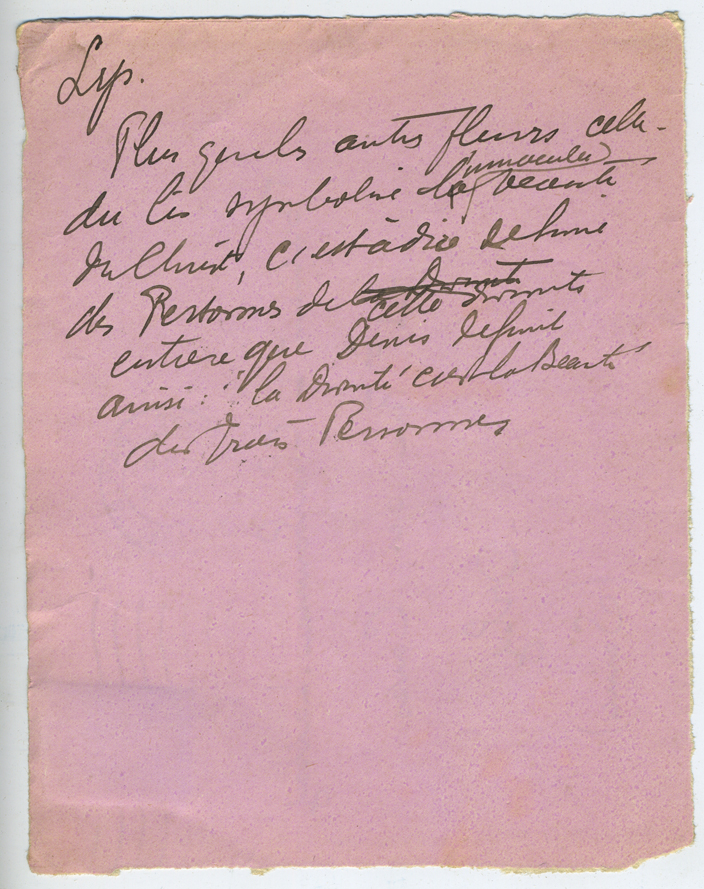 Lys.
Plus que les autres fleurs celle
du lis symbolise la beauté immaculée
du Christ, c'est à dire de l'une
des Personnes de la Divinité cette divinité
entière que Denis définit
ainsi : "la Divinité c'est la Beauté
des trois Personnes